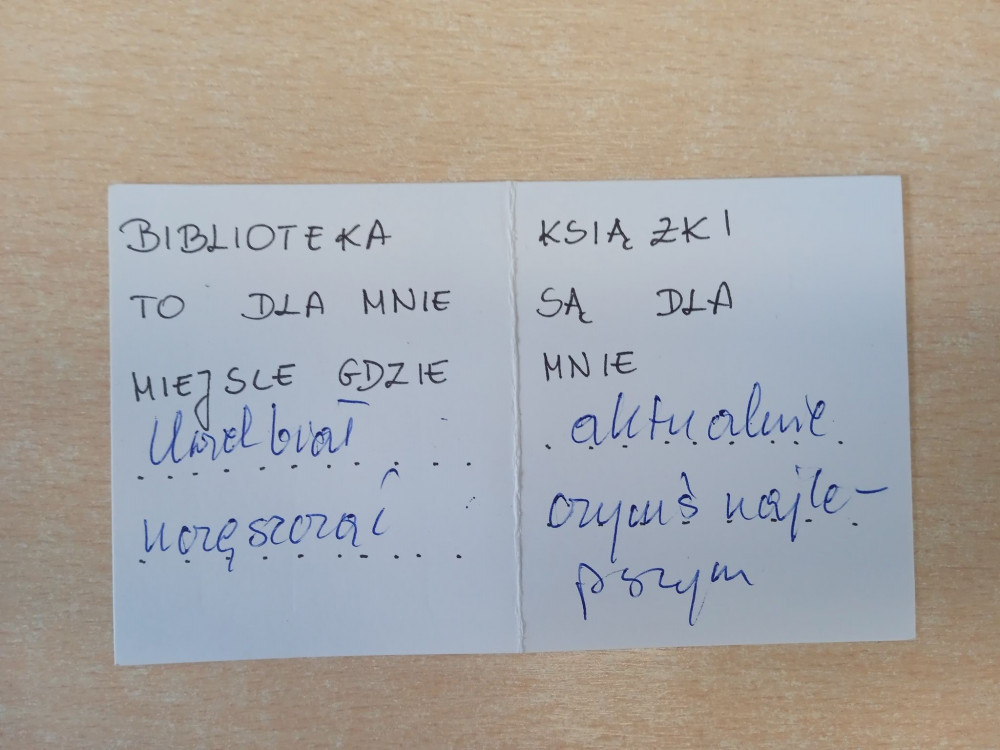 BIBLIOTEKA
TO DLA MNIE
MIEJSCE GDZIE
uczęszczać
KSIĄZKI
SĄ DLA
MNIE
aktualnie
czymś najle-
pszym